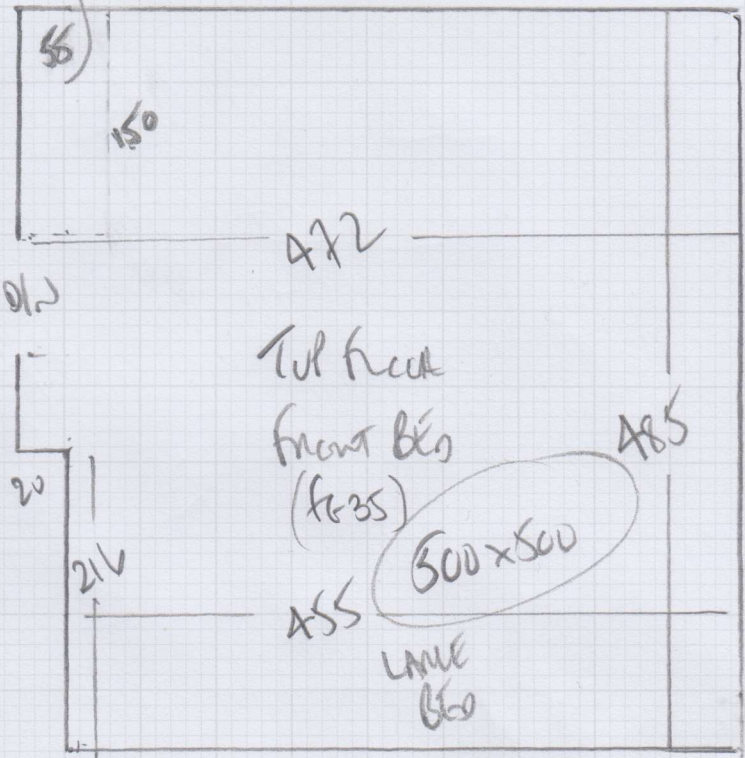 55
150
472
D/W
TOP FLOOR
FRONT BED
485
20
500x500
455
LARGE
BED